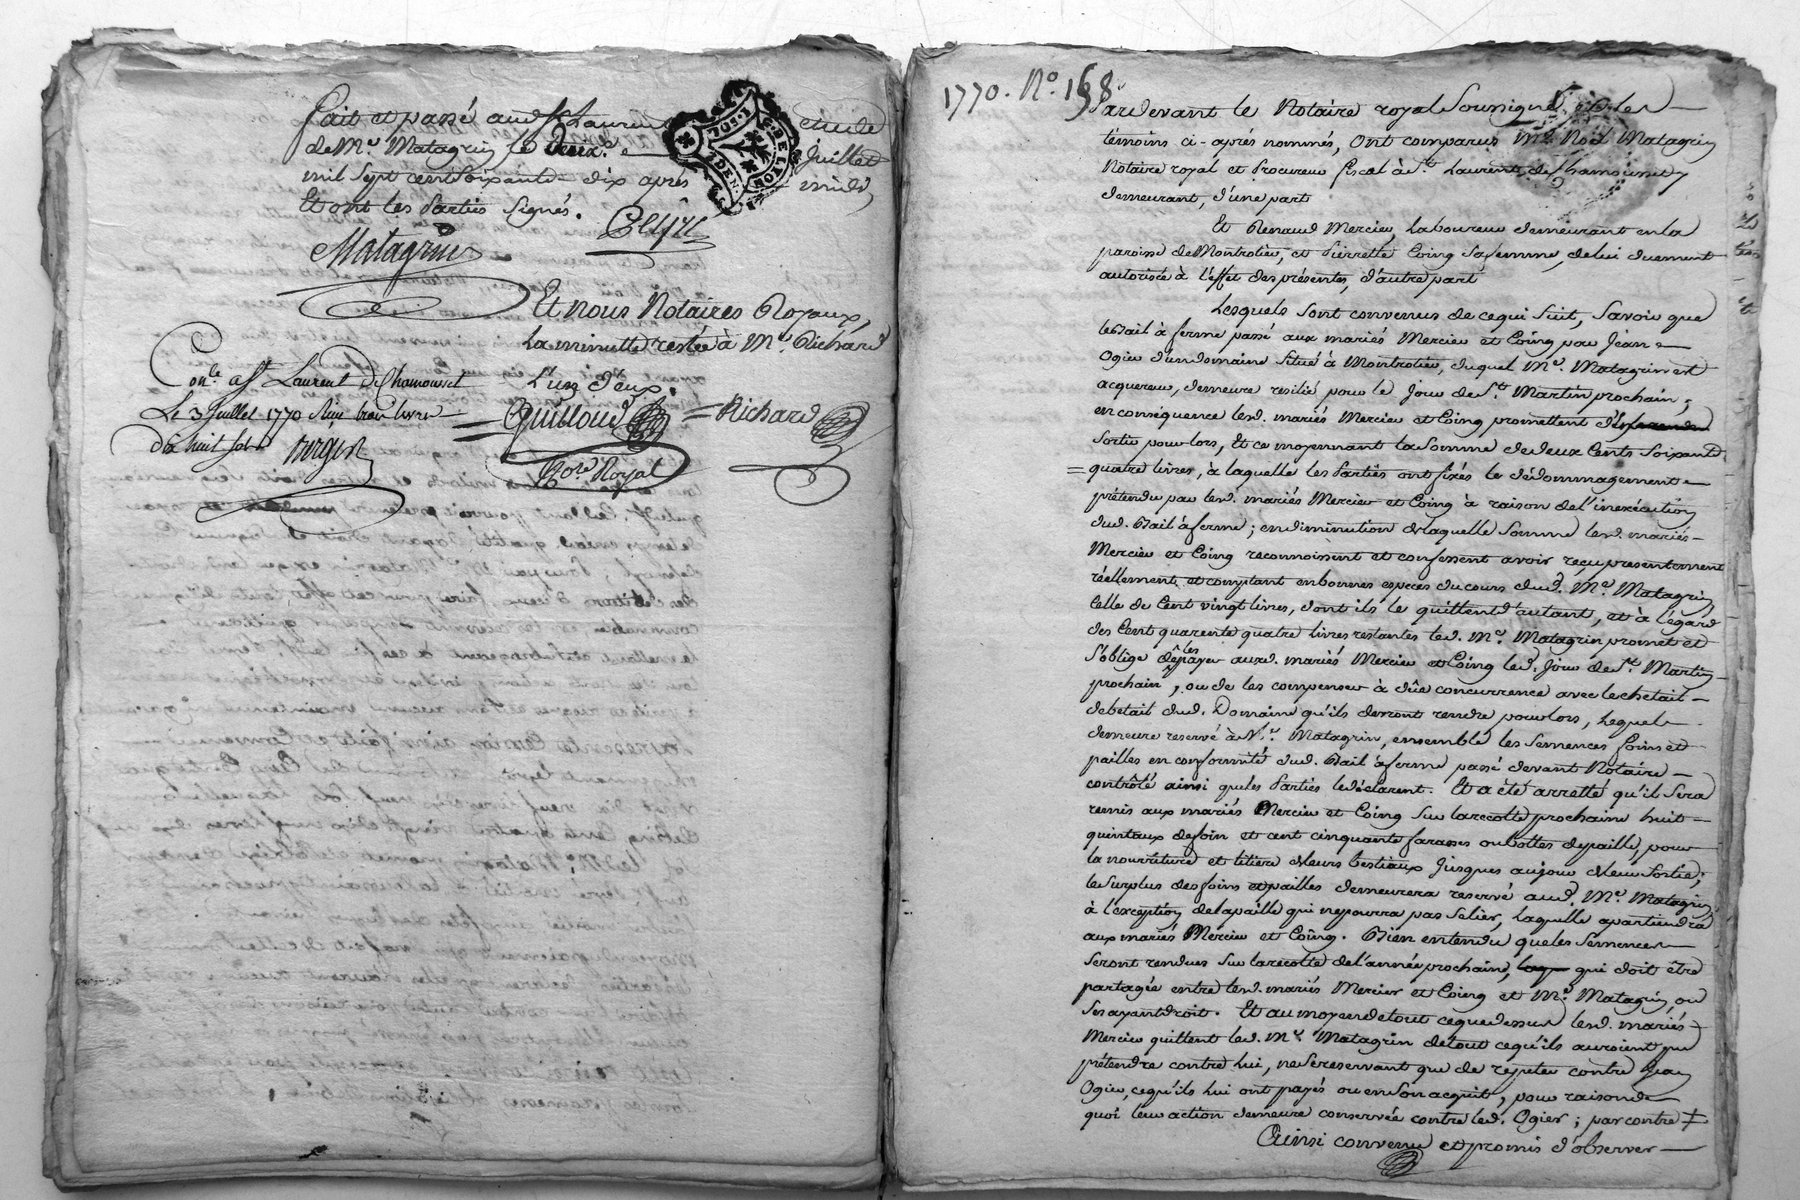 Fait et passé aud. St Laurent étude
de Me. Matagrin le deux. e Juillet
mil Sept cent Soixante-dix après midi
Et ont les Parties Signés.
Peyre
Matagrin
Et nous Notaires Royaux,
La minutte restée à Me. Richard
L'un d'eux.
Conle. a St. Laurent De Chamousset
Le 3 Juillet 1770 livre
Dix huit sols
Guilloud = Richard
Nore. Royal
I. SOL.
DEN.
DE LYON
1770. No. 168
Pardevant le Notaire royal Soussigné, et les
témoins ci-après nommés, Ont comparus Me. Noel Matagrin
Notaire royal et Procureur fiscal à St. Laurent de Chamousset y
demeurant, d'une part
Et Renaud Mercier, Laboureur demeurant en la
paroisse de Montrotier, et Pierrette Coing Sa femme, de lui duement
autorisée à l'effet des présentes, d'autre part
Lesquels Sont convenus de ce qui Suit, Savoir que
le Bail à ferme passé aux mariés Mercier et Coing par Jean
Ogier d'un domaine Situé à Montrotier, duquel Me. Matagrin est
acquereur, demeure resilié pour le Jour de St. Martin prochain;
en conséquence lesd. mariés Mercier et Coing promettent d'en
Sortir pour lors, Et ce moyennant la Somme de deux Cents Soixante
= quatre livres, à laquelle les Parties ont fixés le dédommagement
prétendu par lesd. mariés Mercier et Coing à raison de l'inexécution
dud. Bail à ferme; en diminution de laquelle Somme lesd. mariés
Mercier et Coing reconnoissent et confessent avoir reçu presentement
réellement et comptant en bonnes especes du cours dud. Me. Matagrin,
Celle de Cent vingt livres, dont ils le quittent d'autant, et à l'égard
des Cent quarente quatre livres restantes led. Me. Matagrin promet et
S'oblige de les payer auxd. mariés Mercier et Coing led. Jour de St. Martin
prochain, ou de les compenser à dûe concurrence avec le chetail
de betail dud. Domaine qu'ils devront rendre pour lors, Lequel
demeure reservé à Me. Matagrin, ensemble les Semences foins et
pailles en conformité dud. Bail à ferme passé devant Notaire
contrôlé ainsi que les Parties le déclarent. Et a été arretté qu'il Sera
remis aux mariés Mercier et Coing Sur la recolte prochaine huit
quintaux de foin et cent cinquante farasses ou bottes de paille, pour
la nourriture et litière de leurs bestiaux Jusques au jour de leur Sortie;
le Surplus des foins et pailles demeurera reservé aud. Me. Matagrin,
à l'exception de la paille qui ne pourra pas Se lier, laquelle apartiendra
aux mariés Mercier et Coing. Bien entendu que les Semences
Seront rendues Sur la recolte de l'année prochaine, qui doit être
partagée entre lesd. mariés Mercier et Coing et Me. Matagrin, ou
Ses ayant droit. Et au moyen de tout ce que dessus lesd. mariés
Mercier quittent led. Me. Matagrin de tout ce qu'ils auroient pu
prétendre contre lui, ne Se reservant que de repeter contre Jean
Ogier, ce qu'ils lui ont payés ou en Son acquit, pour raison de
quoi leur action demeure conservée contre led. Ogier; par contre
Ainsi convenu et promis d'observer